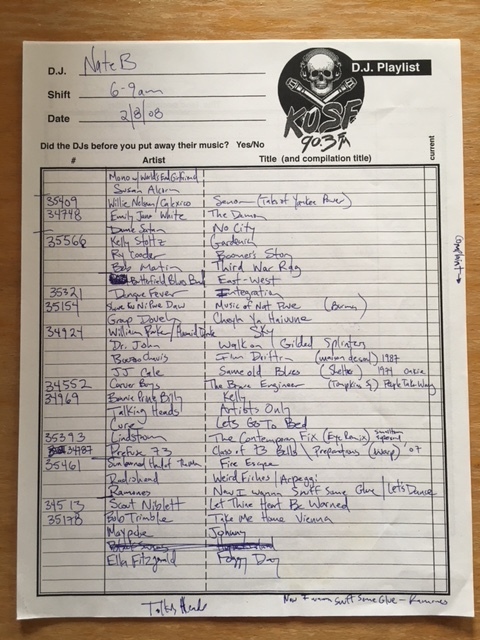 D.J. Nate B
D.J. Playlist
Shift 6-9am
KUSF
90.3 FM
Date 2/8/08
Did the DJs before you put away their music? Yes/No
current
# Artist Title (and compilation title)
Mono w/ World's End Girlfriend
Susan
35409 Willie Nelson/Calexico Senor
34748 Emily Jane White The Demon
No City
35566 Kelly Stoltz
Ry Cooder Boomer's Story
Bob Martin Third War Rag
Butterfield Blues Band East-West
35321 Dengue Fever Integration
35154 Music of Nat Pwe (Burma)
Group Doueh Cheyla Ya Haiuune
34924 William Parker/Hamid Drake Sky
Dr. John Walk on Gilded Splinters
Boozoo Chavis I'm Driftin (maison de soul) 1987
JJ Cale Same old Blues (Shelter) 1974 Okie
34552 Carver Boys The Brave Engineer (Tompkins Sq) People Take Warning
34969 Bonnie Prince Billy Kelly
Talking Heads Artists Only
Cure Lets Go To Bed
35393 Lindstrom The Contemporary Fix
Prefuse 73 Class of 73 Bells \ Preparations (Warp) '07
35461 Sunburned Hand of the Man Fire Escape
Radiohead Weird Fishes/Arpeggi
Ramones Now I wanna Sniff Some Glue / Let's Dance
34513 Scout Niblett Let Thine Heart Be Warned
35178 Bobo Trimble Take Me Home Vienna
Maypole Johnny
Ella Fitzgerald Foggy Day
Talking Heads
Now I wanna Sniff Some Glue - Ramones
Complaint →